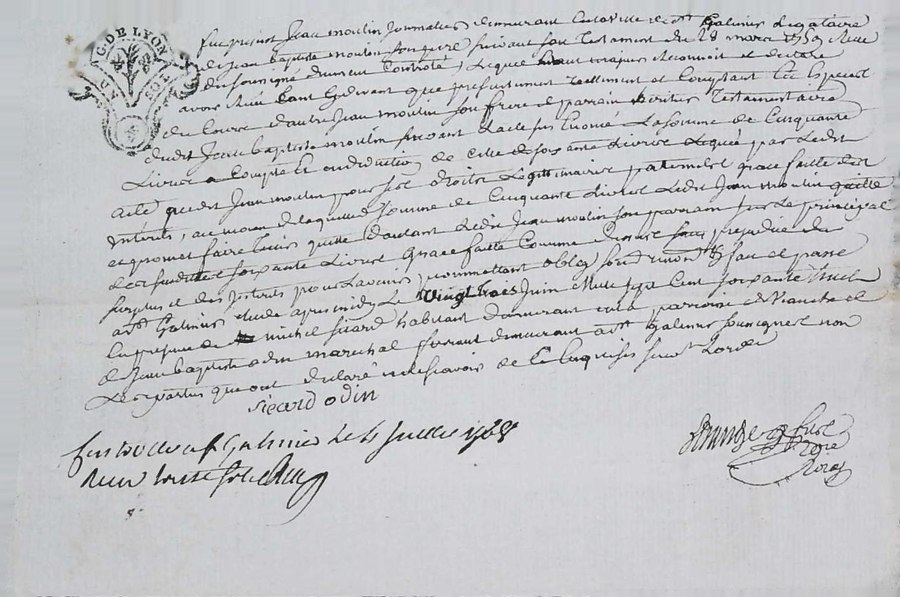 G. DE LYON
fut present Jean moulin Journallier demeurant en la ville de st Galmier Legataire
de Jean Baptiste moulin son pere suivant son Testament du 28 mars 1759 Receu
du soussigné duement Controlé, Lequel majeur Reconnoit et declare
avoir Receu Cant Cydevant que presentement Reellement et Comptant En Especes
du Cours d'autre Jean moulin son frere et parrain heritier Testamentaire
dudit Jean baptiste moulin suivant L'acte sus Enoncé La somme de Cinquante
Livres a Compte Et en deduction de Celle de soixante Livres Leguée par Ledit
acte audit Jean moulin pour ses droits Legitimaires paternels grace faitte des
Interets, au moyen de laquelle somme de Cinquante Livres Ledit Jean moulin quitte
et promet faire tenir quitte d'autant Ledit Jean moulin son parrain sur Le principal
desdittes soixante Livres Grace faitte Comme dessus sans prejudice du
surplus et des Interets pour L'avenir promettant oblig soum renon fait et passé
a st Galmier Etude apres midy Le vingt trois Juin Mille sept Cent soixante huit
En presence de michel sicard habitant demeurant en la parroisse de et
de Jean baptiste odin marechal ferrant demeurant a st Galmier soussignes non
Les parties qui ont declaré ne sçavoir de Ce Enquises suivt Lord
sicard odin
Controllé a st Galmier Le 4 Juillet 1768
Receu treize sols